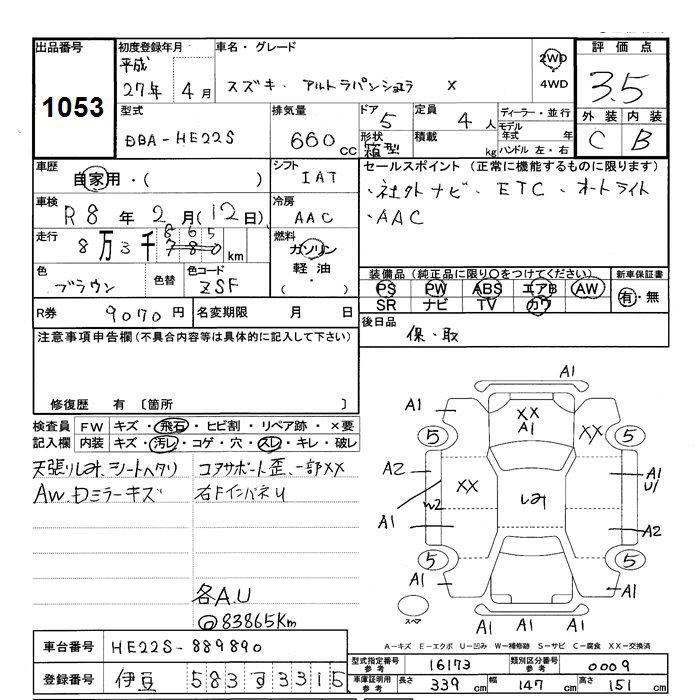 出品番号
1053
初度登録年月
平成
27年 4月
車名・グレード
スズキ アルトラパンショコラ X
2WD
4WD
評価点
3.5
外装 内装
C B
型式
DBA-HE22S
排気量
660 cc
ドア
5
形状
箱型
定員
4 人
積載
kg
ディーラー・並行
モデル年式 年
ハンドル 左・右
車歴
自家用・( )
シフト
IAT
セールスポイント (正常に機能するものに限ります)
・社外ナビ・ETC・オートライト
・AAC
車検
R8年 2月(12日)
冷房
AAC
走行
8万3千780km
865
燃料
ガソリン
軽油
( )
色
ブラウン
色替
色コード
ZSF
装備品 (純正品に限り○をつけてください)
PS PW ABS エアB AW
SR ナビ TV カワ
新車保証書
有・無
R券
9070円
名変期限 月 日
後日品
保・取
注意事項申告欄 (不具合内容等は具体的に記入して下さい)
修復歴 有 〔箇所 〕
検査員
記入欄
FW キズ・飛石・ヒビ割・リペア跡・×要
内装 キズ・汚レ・コゲ・穴・スレ・キレ・破レ
天張りしみ、シートヘタリ
AW、Dミラーキズ
コアサポート歪、一部XX
右Fインパネu
各A.U
@83865Km
A1
A1
XX
A1
XX
5
5
A2
XX
しみ
A1
U1
W2
A1
A2
5
5
A1
A1
A1
A1
スペア
A-キズ E-エクボ U-凹み W-補修跡 S-サビ C-腐食 XX-交換済
車台番号
HE22S-889890
登録番号
伊豆 583 す 3315
型式指定番号
参考
16173
類別区分番号
参考
0009
車庫証明用
参考
長さ 339cm
幅 147cm
高さ 151cm